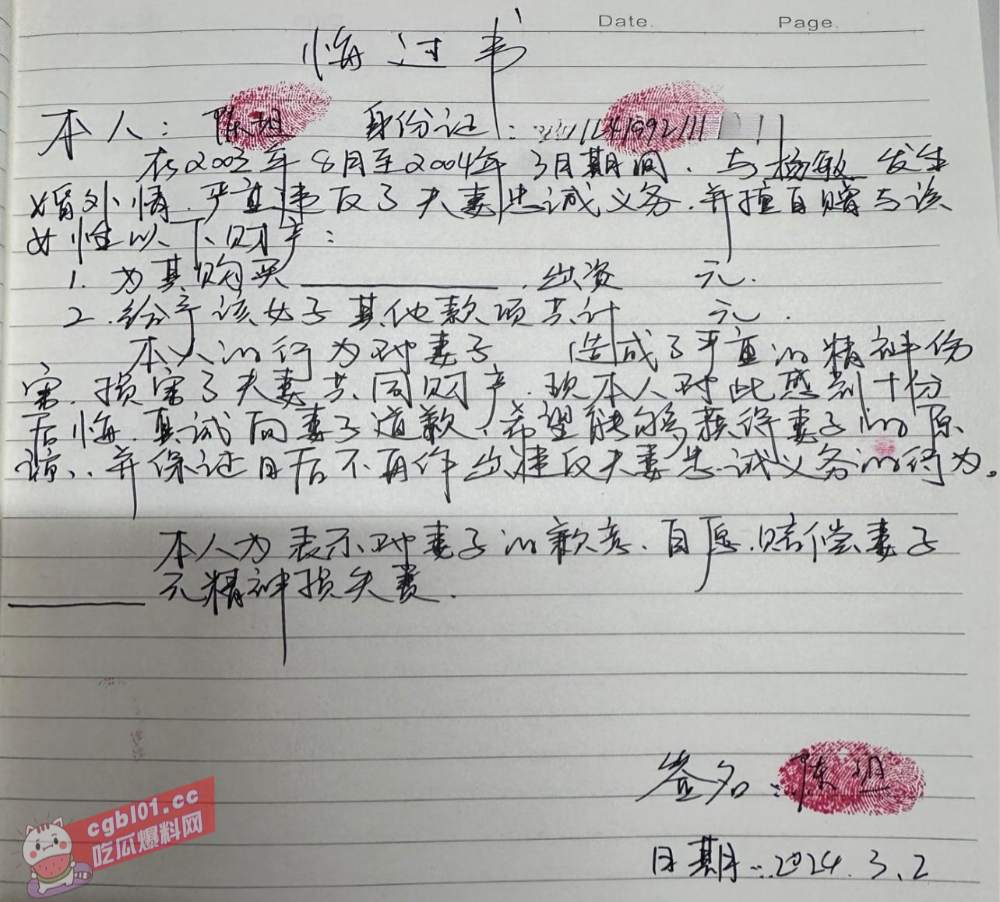 Date. Page.
悔过书
本人: 陈坦 身份证:
在2003年8月至2004年3月期间.与杨敏发生
婚外情.严重违反了夫妻忠诚义务.并擅自赠与该
女性以下财产:
1.为其购买 .出资 元.
2.给予该女子其他款项共计 元.
本人的行为对妻子 造成了严重的精神伤
害.损害了夫妻共同财产.现本人对此感到十分
后悔.真诚向妻子道歉.希望能够获得妻子的原
谅.并保证日后不再作出违反夫妻忠诚义务的行为。
本人为表示对妻子的歉意.自愿.赔偿妻子
元精神损失费.
签名:陈坦
日期:2024.3.2
cgbl01.cc
吃瓜爆料网